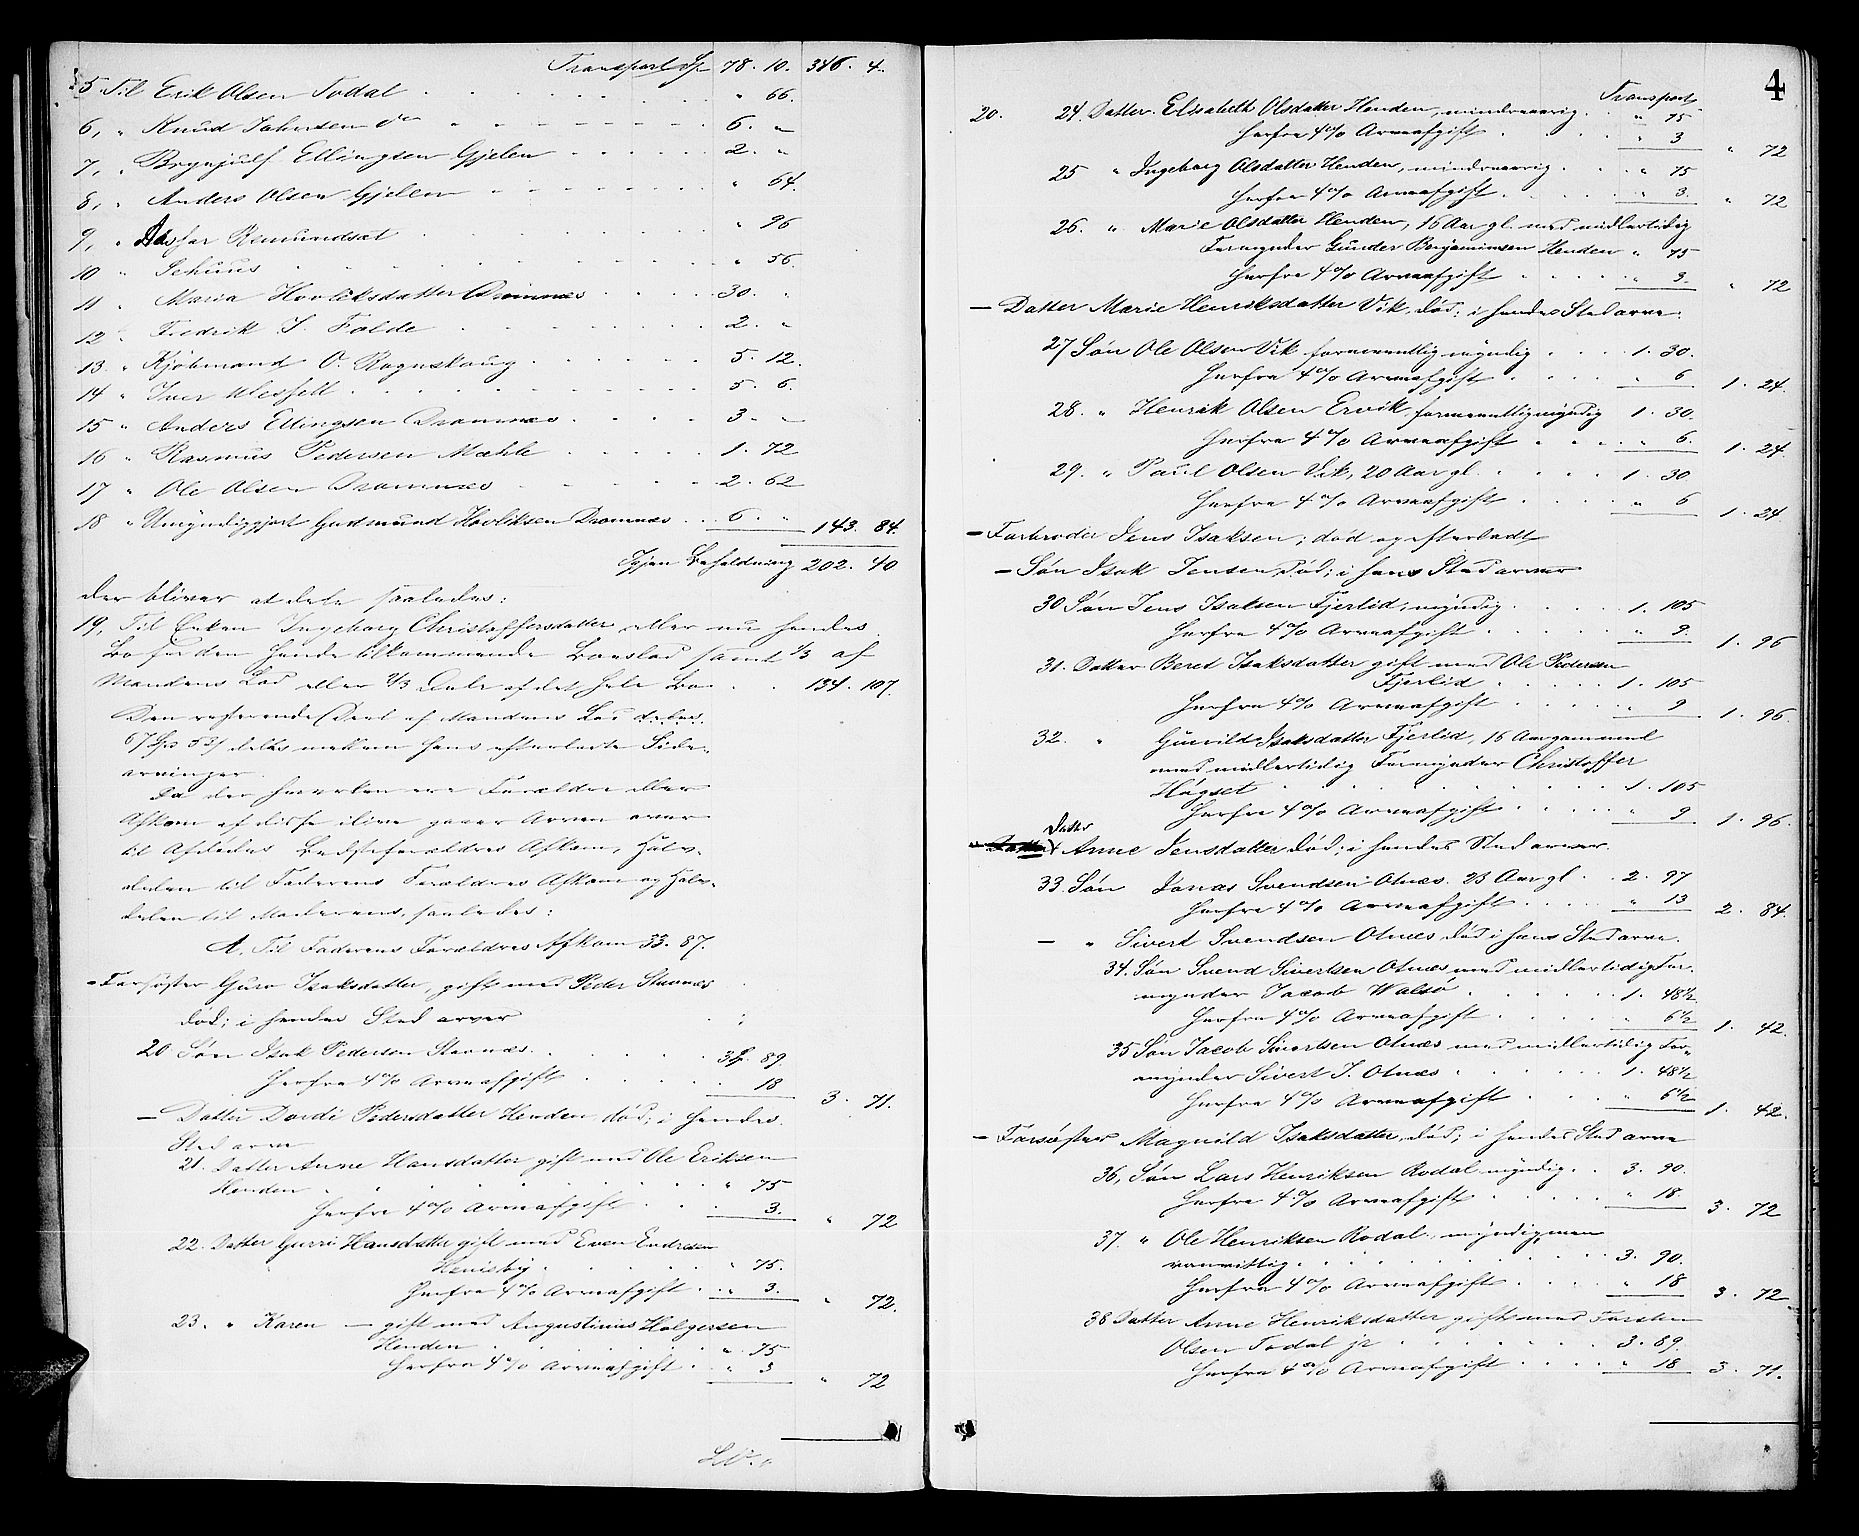 Transport Sp 78. 10. 346. 4.
5. Til Erik Olsen Todal . . . " 66.
6, " Knud Johnsen do . . . 6. "
7, " Brynjulf Ellingsen Gjelen . . . 2. "
8, " Anders Olsen Gjelen . . . " 64.
9, " Remundset . . . " 96
10 " Schuus . . . " 56.
11 " Maria Hovliksdatter Dromnæs . . . 30. "
12 " Fredrik J. Folde . . . 2. "
13 " Kjøbmand O. Rognskoug . . . 5. 12.
14 " Iver Messelt . . . 5. 6.
15 " Anders Ellingsen Dromnæs . . . 3. "
16 " Rasmus Pedersen Mæhle . . . 1. 72
17 " Ole Olsen Dromnæs . . . 2. 62
18 " Umyndiggjort Gudmund Hovliksen Dromnæs . . 6. " 143. 84.
Igjen Beholdning 202. 40
der bliver at dele saaledes:
19, Til Enken Ingeborg Christoffersdatter eller nu hendes
Bo for den hende tilkommende Boeslod samt 1/3 af
Mandens Lod eller 2/3 Dele af det hele Bo . . 134. 107.
Den resterende Deel af Mandens Lod deles
67 Sp 53 ß deles mellem hans efterladte Side-
arvinger.
Da der hverken ere Forældre eller
Afkom af disse ilive gaaer Arven over
til Afdødes Bedsteforældres Afkom, Halv-
delen til Faderens Forældres Afkom og Halv-
delen til Moderens, saaledes:
A, Til Faderens Forældres Afkom 33. 87.
- Farsøster Guro Isaksdatter, gift med Peder Stavnæs
død; i hendes Sted arver
20 Søn Isak Pedersen Stavnæs . . . 3 Sp. 89.
Herfra 4% Arveafgift . . . 18 3. 71.
- Datter Dordi Pedersdatter Henden, død; i hendes
Sted arve
21. Datter Anne Hansdatter gift med Ole Eriksen
Henden . . . " 75
Herfra 4% Arveafgift . . . 3. " 72
22. Datter Gurri Hansdatter gift med Even Endresen
Henisby . . . " 75.
Herfra 4% Arveafgift . . " 3. " 72.
23. " Karen — gift med Augustinus Holgersen
Henden . . . " 75
Herfra 4% Arveafgift . . " 3 " 72
Transport
4
20. 24. Datter Elisabeth Olsdatter Henden, mindreaarig . . " 75
Herfra 4% Arveafgift . . " 3 " 72
25 " Ingeborg Olsdatter Henden, mindreaarig . . " 75
Herfra 4% Arveafgift . . " 3. " 72
26. " Marie Olsdatter Henden, 16 Aar gl. med midlertidig
Formynder Gunder Benjaminsen Henden " 75
Herfra 4% Arveafgift . . " 3. " 72
- Datter Marie Henriksdatter Vik, død; i hendes Sted arve:
27 Søn Ole Olsen Vik formeentlig myndig . . . 1. 30.
Herfra 4% Arveafgift . . " 6 1. 24.
28. " Henrik Olsen Ervik, formeentlig myndig 1. 30.
Herfra 4% Arveafgift . . " 6. 1. 24.
29. " Paul Olsen Vik, 20 Aar gl. . . . 1. 30
Herfra 4% Arveafgift . . . " 6 1. 24.
- Farbroder Jens Isaksen; død og efterladt
- Søn Isak Jensen, død; i hans Sted arver
30 Søn Jens Isaksen Fjerlid, myndig . . . 1. 105
Herfra 4% Arveafgift . . . " 9. 1. 96
31. Datter Beret Isaksdatter gift med Ole Pedersen
Fjerlid . . . 1. 105
Herfra 4% Arveafgift . . . " 9 1. 96.
32. " Gunild Isaksdatter Fjerlid, 16 Aar gammel
med midlertidig Formynder Christoffer
Høgset . . . 1. 105
Herfra 4% Arveafgift . . . " 9 1. 96.
Datter
Anne Jensdatter død; i hendes Sted arver.
33. Søn Jonas Svendsen Otnæs. 23 Aar gl. . . 2. 97
Herfra 4% Arveafgift . . . " 13 2. 84.
- " Sivert Svendsen Otnæs, død i hans Sted arve.
34. Søn Svend Sivertsen Otnæs med midlertidig For-
mynder Jacob Walsø . . . 1. 48½
Herfra 4% Arveafgift . . . " 6½ 1. 42.
35 Søn Jacob Sivertsen Otnæs med midlertidig For-
mynder Sivert J. Otnæs . . . 1. 48½
Herfra 4% Arveafgift . . . " 6½ 1. 42.
- Farsøster Magnild Isaksdatter, død; i hendes Sted arve
36, Søn Lars Henriksen Rodal myndig . . 3. 90.
Herfra 4% Arveafgift . . . " 18. 3. 72
37. " Ole Henriksen Rodal, myndig men
vanvittig . . . 3. 90.
Herfra 4% Arveafgift . . . " 18 3. 72
38 Datter Anne Henriksdatter gift med Torsten
Olsen Todal jr . . . 3. 89.
Herfra 4% Arveafgift . . . " 18 3. 71.